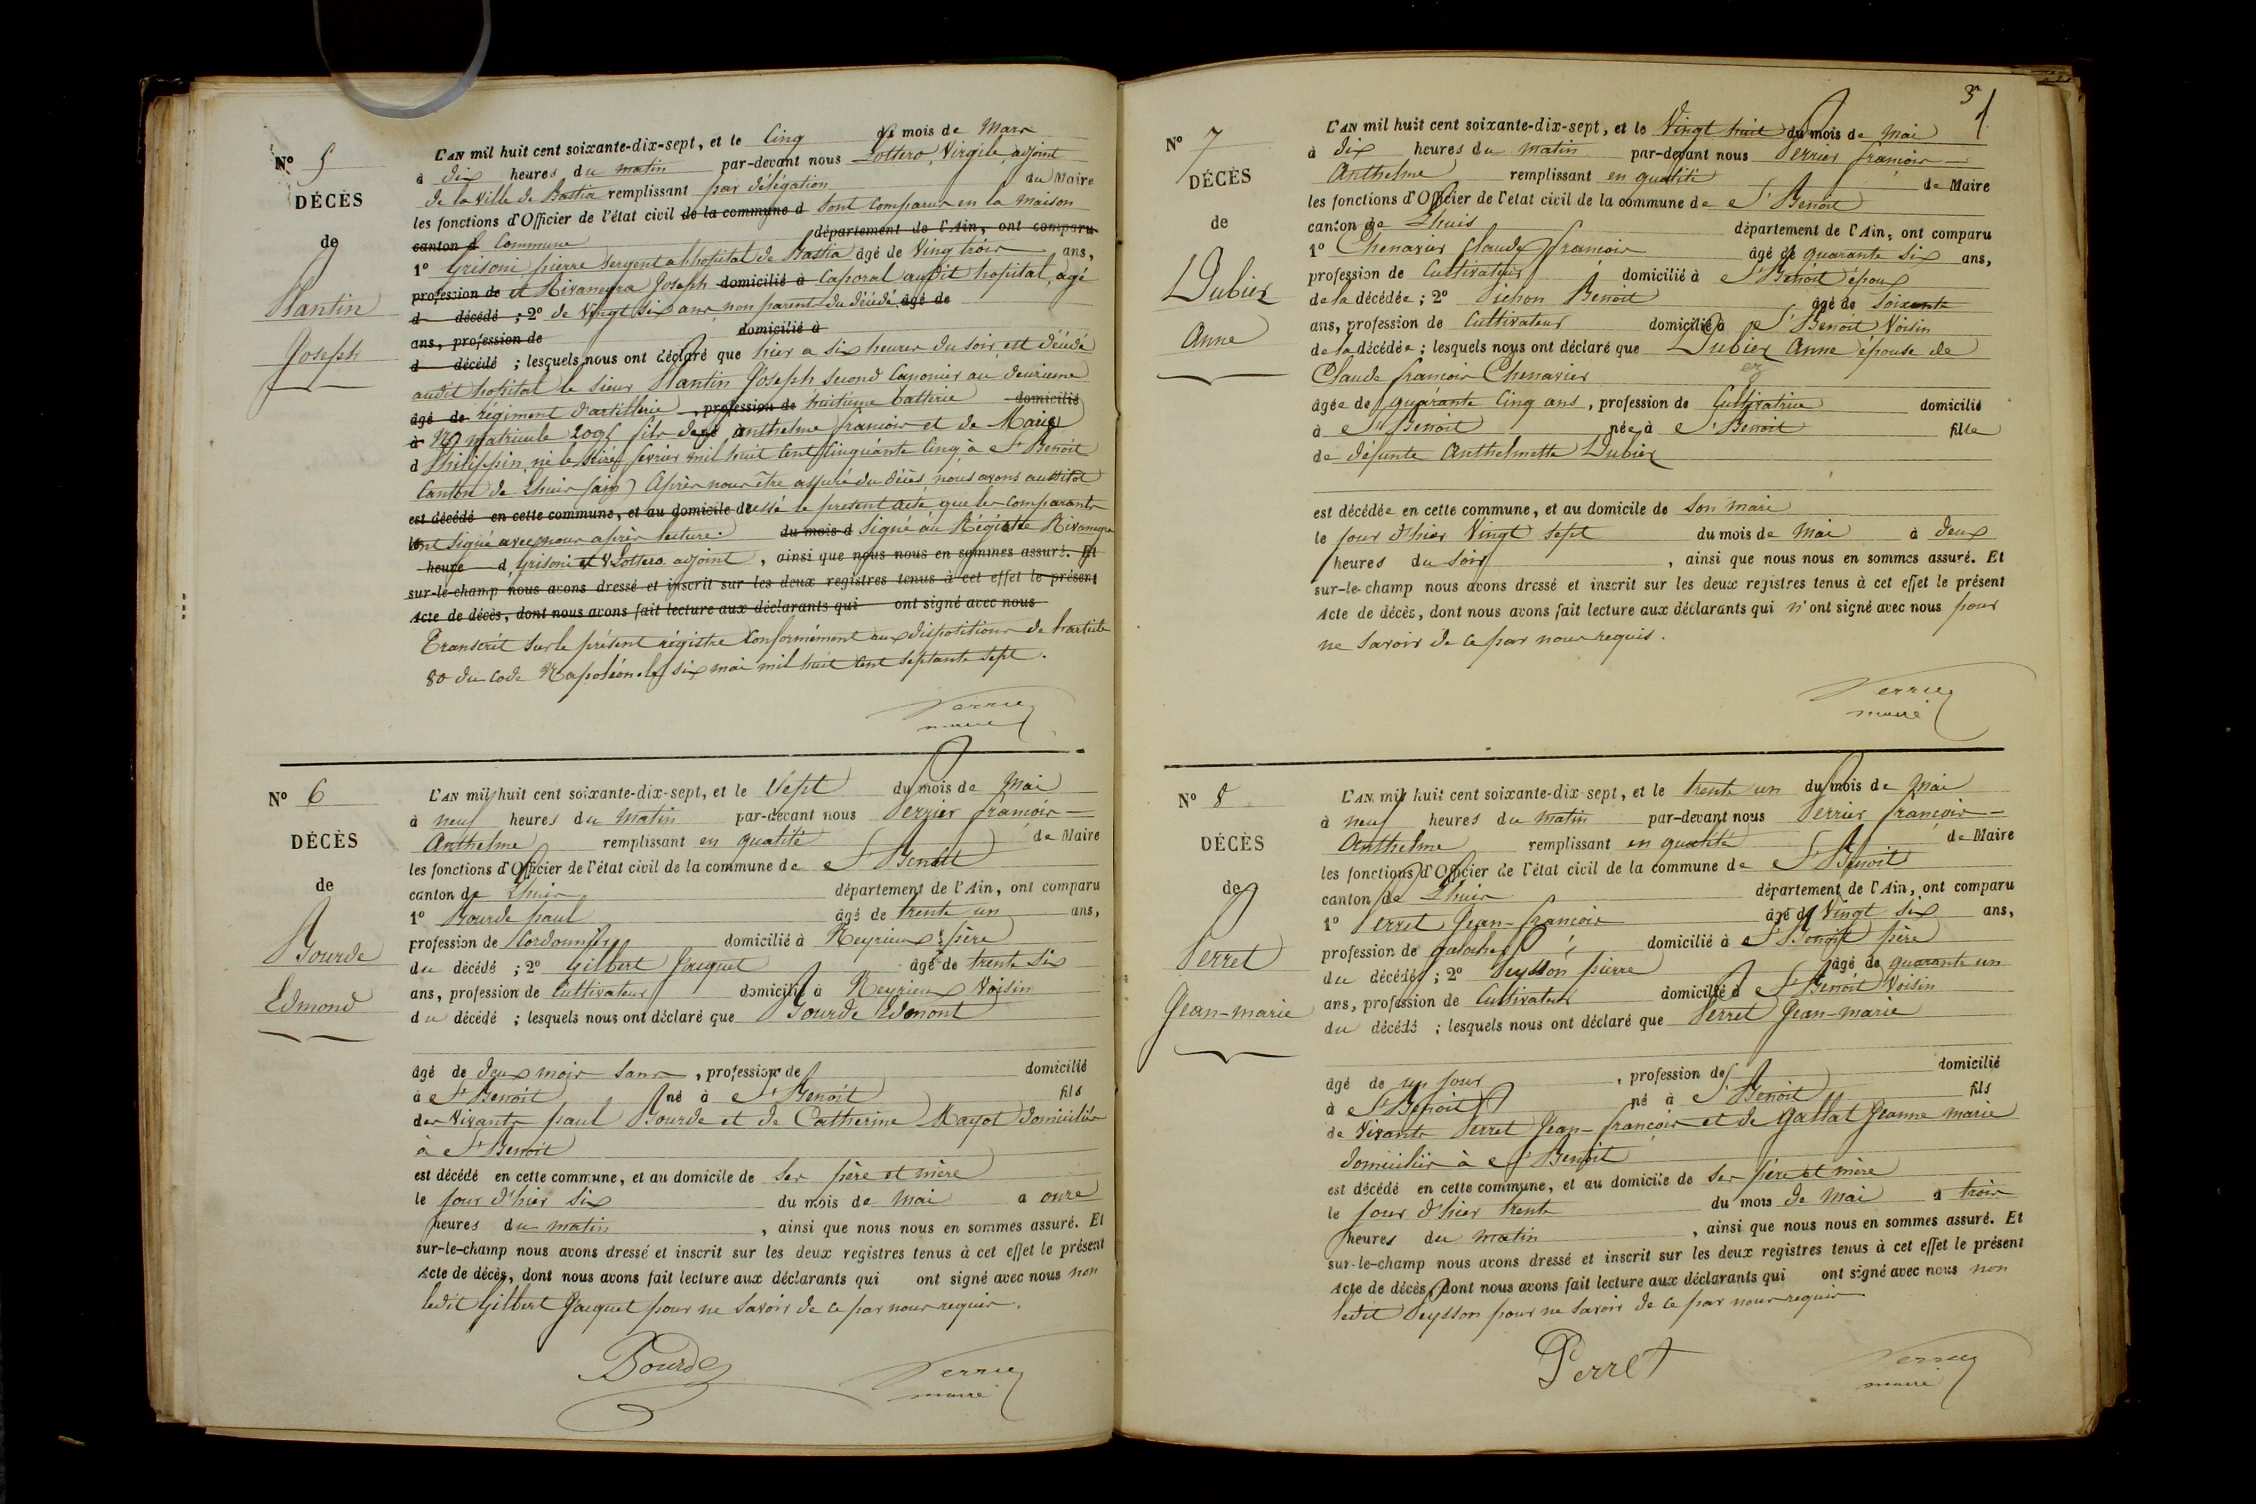 Nº 5
DÉCÈS
de
Plantin
Joseph
L'AN mil huit cent soixante-dix-sept, et le Cinq du mois de Mars
à dix heures du matin par-devant nous Lottero, Virgile, adjoint
de la ville de Bastia remplissant par délégation du Maire
les fonctions d'Officier de l'état civil de la commune d Sont Comparus en la maison
canton d Commune département de l'Ain, ont comparu
1º Grisoni pierre Sergent a l'hopital de Bastia âgé de Vingt trois ans,
profession de et Rivanegra Joseph domicilié à Caporal audit hopital, agé
d décédé ; 2º de Vingt Six ans non parent du décédé âgé de
ans, profession de domicilié à
d décédé ; lesquels nous ont déclaré que hier a six heures du soir est décédé
audit hopital le sieur Plantin Joseph Second Canonier au deuxieme
âgé de régiment d'artillerie , profession de huitième batterie domicilié
à Nº matricule 2095 fils de né à anthelme françois et de Marie
d Philippin, né le seize fevrier mil huit Cent Cinquante Cinq à St Benoit
Canton de Lhuis (ain) Après nous être assuré du décès, nous avons aussitot
est décédé en cette commune, et au domicile de dressé le present acte que les Comparants
ont Signé avec nous après lecture. du mois d Signé au Régistre Rivanegra
heure d Grisoni et V Lottero adjoint , ainsi que nous nous en sommes assuré. Et
sur-le-champ nous avons dressé et inscrit sur les deux registres tenus à cet effet le présent
Acte de décès, dont nous avons fait lecture aux déclarants qui ont signé avec nous
Transcrit Sur le présent régistre Conformément aux dispositions de l'article
80 du Code Napoléon. le six mai mil huit Cent Septante Sept.
Perrier
maire
Nº 6
DÉCÈS
de
Bourde
Edmond
L'AN mil huit cent soixante-dix-sept, et le Sept du mois de Mai
à neuf heures du Matin par-devant nous Perrier françois
Anthelme remplissant en qualité de Maire
les fonctions d'Officier de l'état civil de la commune de St Benoit
canton de Lhuis département de l'Ain, ont comparu
1º Bourde paul âgé de trente un ans,
profession de Cordonnier domicilié à Meyrieux père
du décédé ; 2º Gilbert Jacquet âgé de trente Six
ans, profession de Cultivateur domicilié à Meyrieux Voisin
du décédé ; lesquels nous ont déclaré que Bourde Edmont
âgé de deux mois Sans , profession de domicilié
à St Benoit né à St Benoit fils
des Vivants paul Bourde et de Catherine Mayot domiciliés
à St Benoit
est décédé en cette commune, et au domicile de Ses père et mère
le jour d'hier Six du mois de Mai a onze
heures du matin , ainsi que nous nous en sommes assuré. Et
sur-le-champ nous avons dressé et inscrit sur les deux registres tenus à cet effet le présent
Acte de décès, dont nous avons fait lecture aux déclarants qui ont signé avec nous non
ledit Gilbert Jacquet pour ne Savoir de ce par nous requis.
Bourde
Perrier
maire
5
Nº 7
DÉCÈS
de
Dubiez
Anne
L'AN mil huit cent soixante-dix-sept, et le Vingt huit du mois de Mai
à dix heures du matin par-devant nous Perrier françois
Anthelme remplissant en qualité de Maire
les fonctions d'Officier de l'état civil de la commune de St Benoit
canton de Lhuis département de l'Ain, ont comparu
1º Chenavier Claude françois âgé de quarante Six ans,
profession de Cultivateur domicilié à St Benoit époux
de la décédée ; 2º Pichon Benoit âgé de Soixante
ans, profession de Cultivateur domicilié à St Benoit Voisin
de la décédée ; lesquels nous ont déclaré que Dubiez Anne épouse de
Claude françois Chenavier
âgée de quarante Cinq ans , profession de Cultivatrice domicilié
à St Benoit née à St Benoit fille
de défunte Anthelmette Dubiez
est décédée en cette commune, et au domicile de Son mari
le jour d'hier Vingt Sept du mois de Mai à deux
heures du Soir , ainsi que nous nous en sommes assuré. Et
sur-le-champ nous avons dressé et inscrit sur les deux registres tenus à cet effet le présent
Acte de décès, dont nous avons fait lecture aux déclarants qui n'ont signé avec nous pour
ne Savoir de ce par nous requis.
Perrier
maire
Nº 8
DÉCÈS
de
Perret
Jean-marie
L'AN mil huit cent soixante-dix-sept, et le trente un du mois de Mai
à neuf heures du matin par-devant nous Perrier françois
Anthelme remplissant en qualité de Maire
les fonctions d'Officier de l'état civil de la commune de St Benoit
canton de Lhuis département de l'Ain, ont comparu
1º Perret Jean-françois âgé de Vingt Six ans,
profession de galocher domicilié à St Benoit père
du décédé ; 2º Peysson pierre âgé de quarante un
ans, profession de Cultivateur domicilié à St Benoit Voisin
du décédé ; lesquels nous ont déclaré que Perret Jean-marie
âgé de un jour , profession de domicilié
à St Benoit né à St Benoit fils
de Vivants Perret Jean-françois et de Gallat Jeanne marie
domiciliés à St Benoit
est décédé en cette commune, et au domicile de Ses père et mère
le jour d'hier trente du mois de Mai à trois
heures du matin , ainsi que nous nous en sommes assuré. Et
sur-le-champ nous avons dressé et inscrit sur les deux registres tenus à cet effet le présent
Acte de décès, dont nous avons fait lecture aux déclarants qui ont signé avec nous non
ledit Peysson pour ne Savoir de ce par nous requis
Perret
Perrier
maire